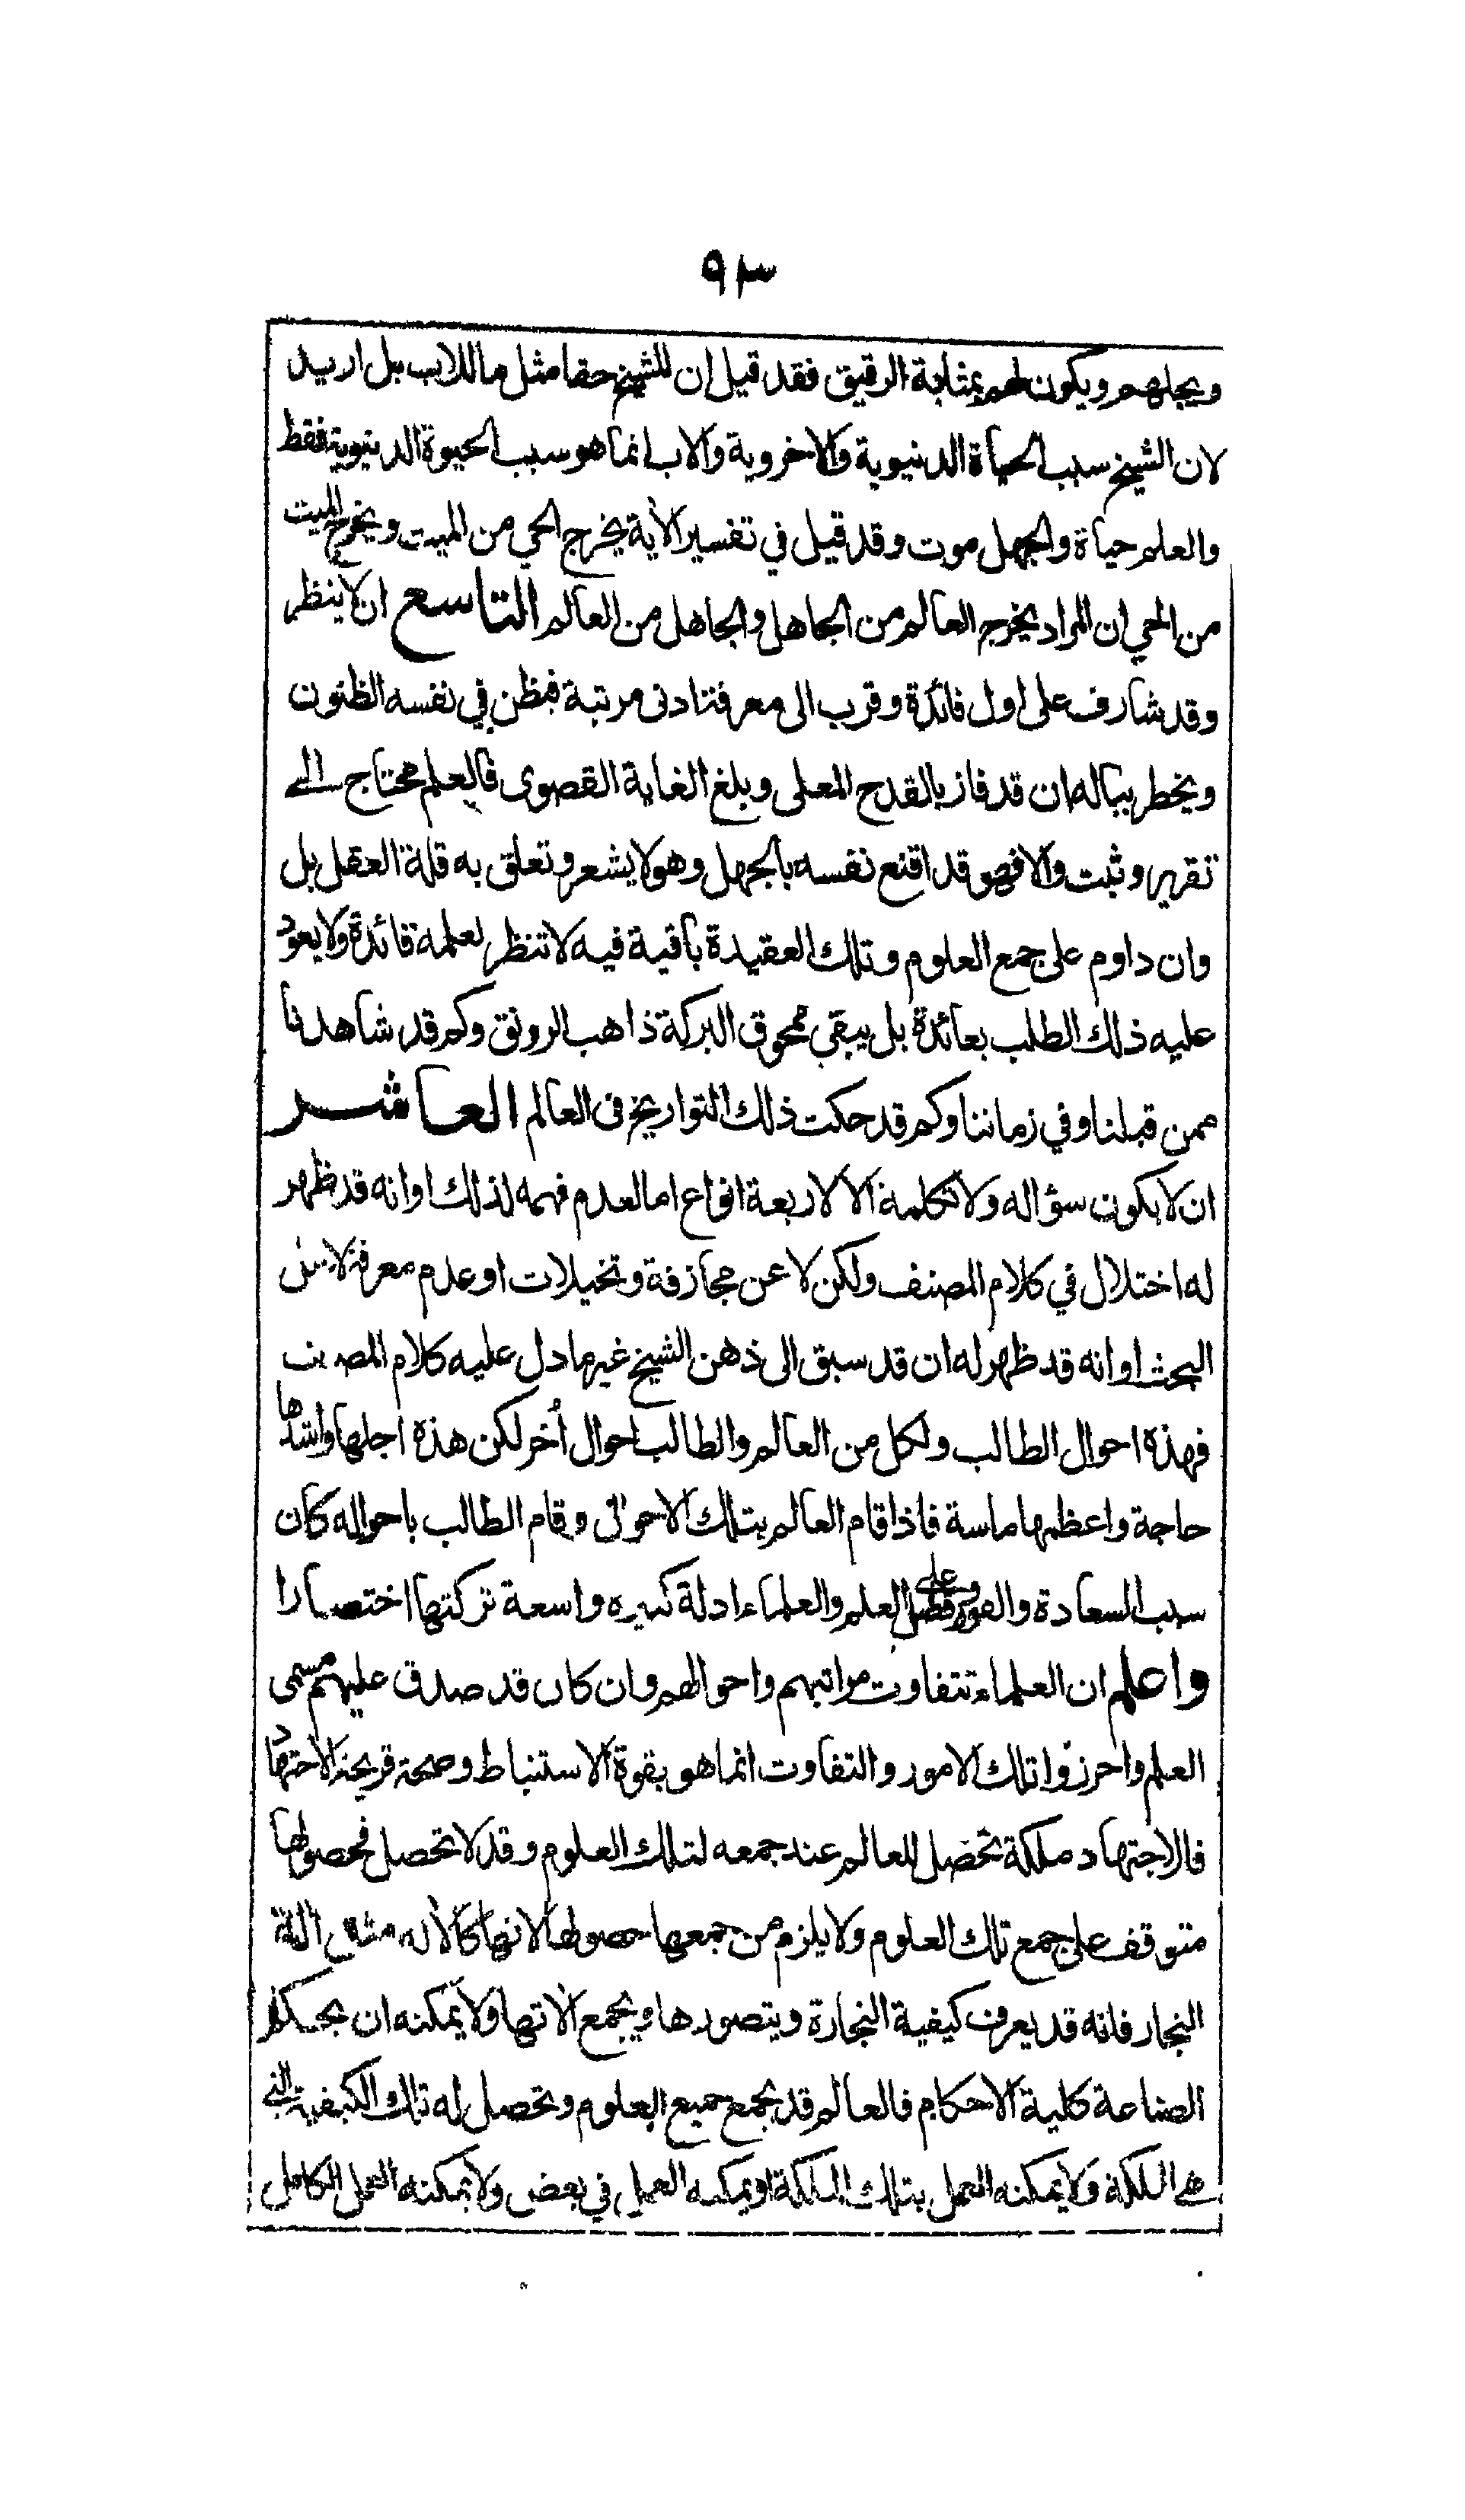 ٩٣
ويجلهم ويكون لهم بمثابة الرقيق فقد قيل ان للشيخ حقا مثل ما للاب بل ازيد
لان الشيخ سبب الحياة الدنيوية والاخروية والاب انما هو سبب الحيوة الدنيوية فقط
والعلم حياة والجهل موت وقد قيل في تفسير الآية يخرج الحي من الميت ويخرج الميت
من الحي ان المراد يخرج العالم من الجاهل والجاهل من العالم التاسع ان لا ينظر
وقد شارف على اول فائدة وقرب الى معرفتا دنى مرتبة فيظن في نفسه الظنون
ويخطر بباله ان قد فاز بالقدح المعلى وبلغ الغاية القصوى فالعلم محتاج الى
تقرير وثبت والا فهو قد اقنع نفسه بالجهل وهو لا يشعر وتعلق به قلة العقل بل
وان داوم على جمع العلوم وتلك العقيدة باقية فيه لا تنظر لعلمه فائدة ولا يعود
عليه ذلك الطلب بعائدة بل يبقى ممحوق البركة ذاهب الرونق وكم قد شاهدنا
ممن قبلنا وفي زماننا وكم قد حكت ذلك التواريخ في العالم العاشر
ان لا يكون سؤاله ولا تكلمه الا لاربعة انواع اما لعدم فهمه لذلك او انه قد ظهر
له اختلال في كلام المصنف ولكن لا عن مجازفة وتخيلات او عدم معرفة لا
البحث او انه قد ظهر له ان قد سبق الى ذهن الشيخ غير ما دل عليه كلام المصنف
فهذه احوال الطالب ولكل من العالم والطالب احوال أخر لكن هذه اجلها واشدها
حاجة واعظمها ماسة فاذا قام العالم بتلك الاحوال وقام الطالب باحواله كان
سبب السعادة والفوز وعلى فضل العلم والعلماء ادلة كثيره واسعة تركتها اختصارا
واعلم ان العلماء تتفاوت مراتبهم واحوالهم وان كان قد صدق عليهم مسمى
العلم واحرزوا تلك الامور والتفاوت انما هو بقوة الاستنباط وصحة قريحة الاجتهاد
فالاجتهاد ملكة تحصل للعالم عند جمعه لتلك العلوم وقد لا تحصل فحصولها
متوقف على جمع تلك العلوم ولا يلزم من جمعها حصولها لانها كالآله مثاله آلة
النجار فانه قد يعرف كيفية النجارة ويتصورها ويجمع الآتها ولا يمكنه ان يحكم
الصناعة كلية الاحكام فالعالم قد يجمع جميع العلوم وتحصل له تلك الكيفية التي
هي الملكة ولا يمكنه العمل بتلك الملكة او يمكنه العمل في بعض ولا يمكنه العمل الكامل